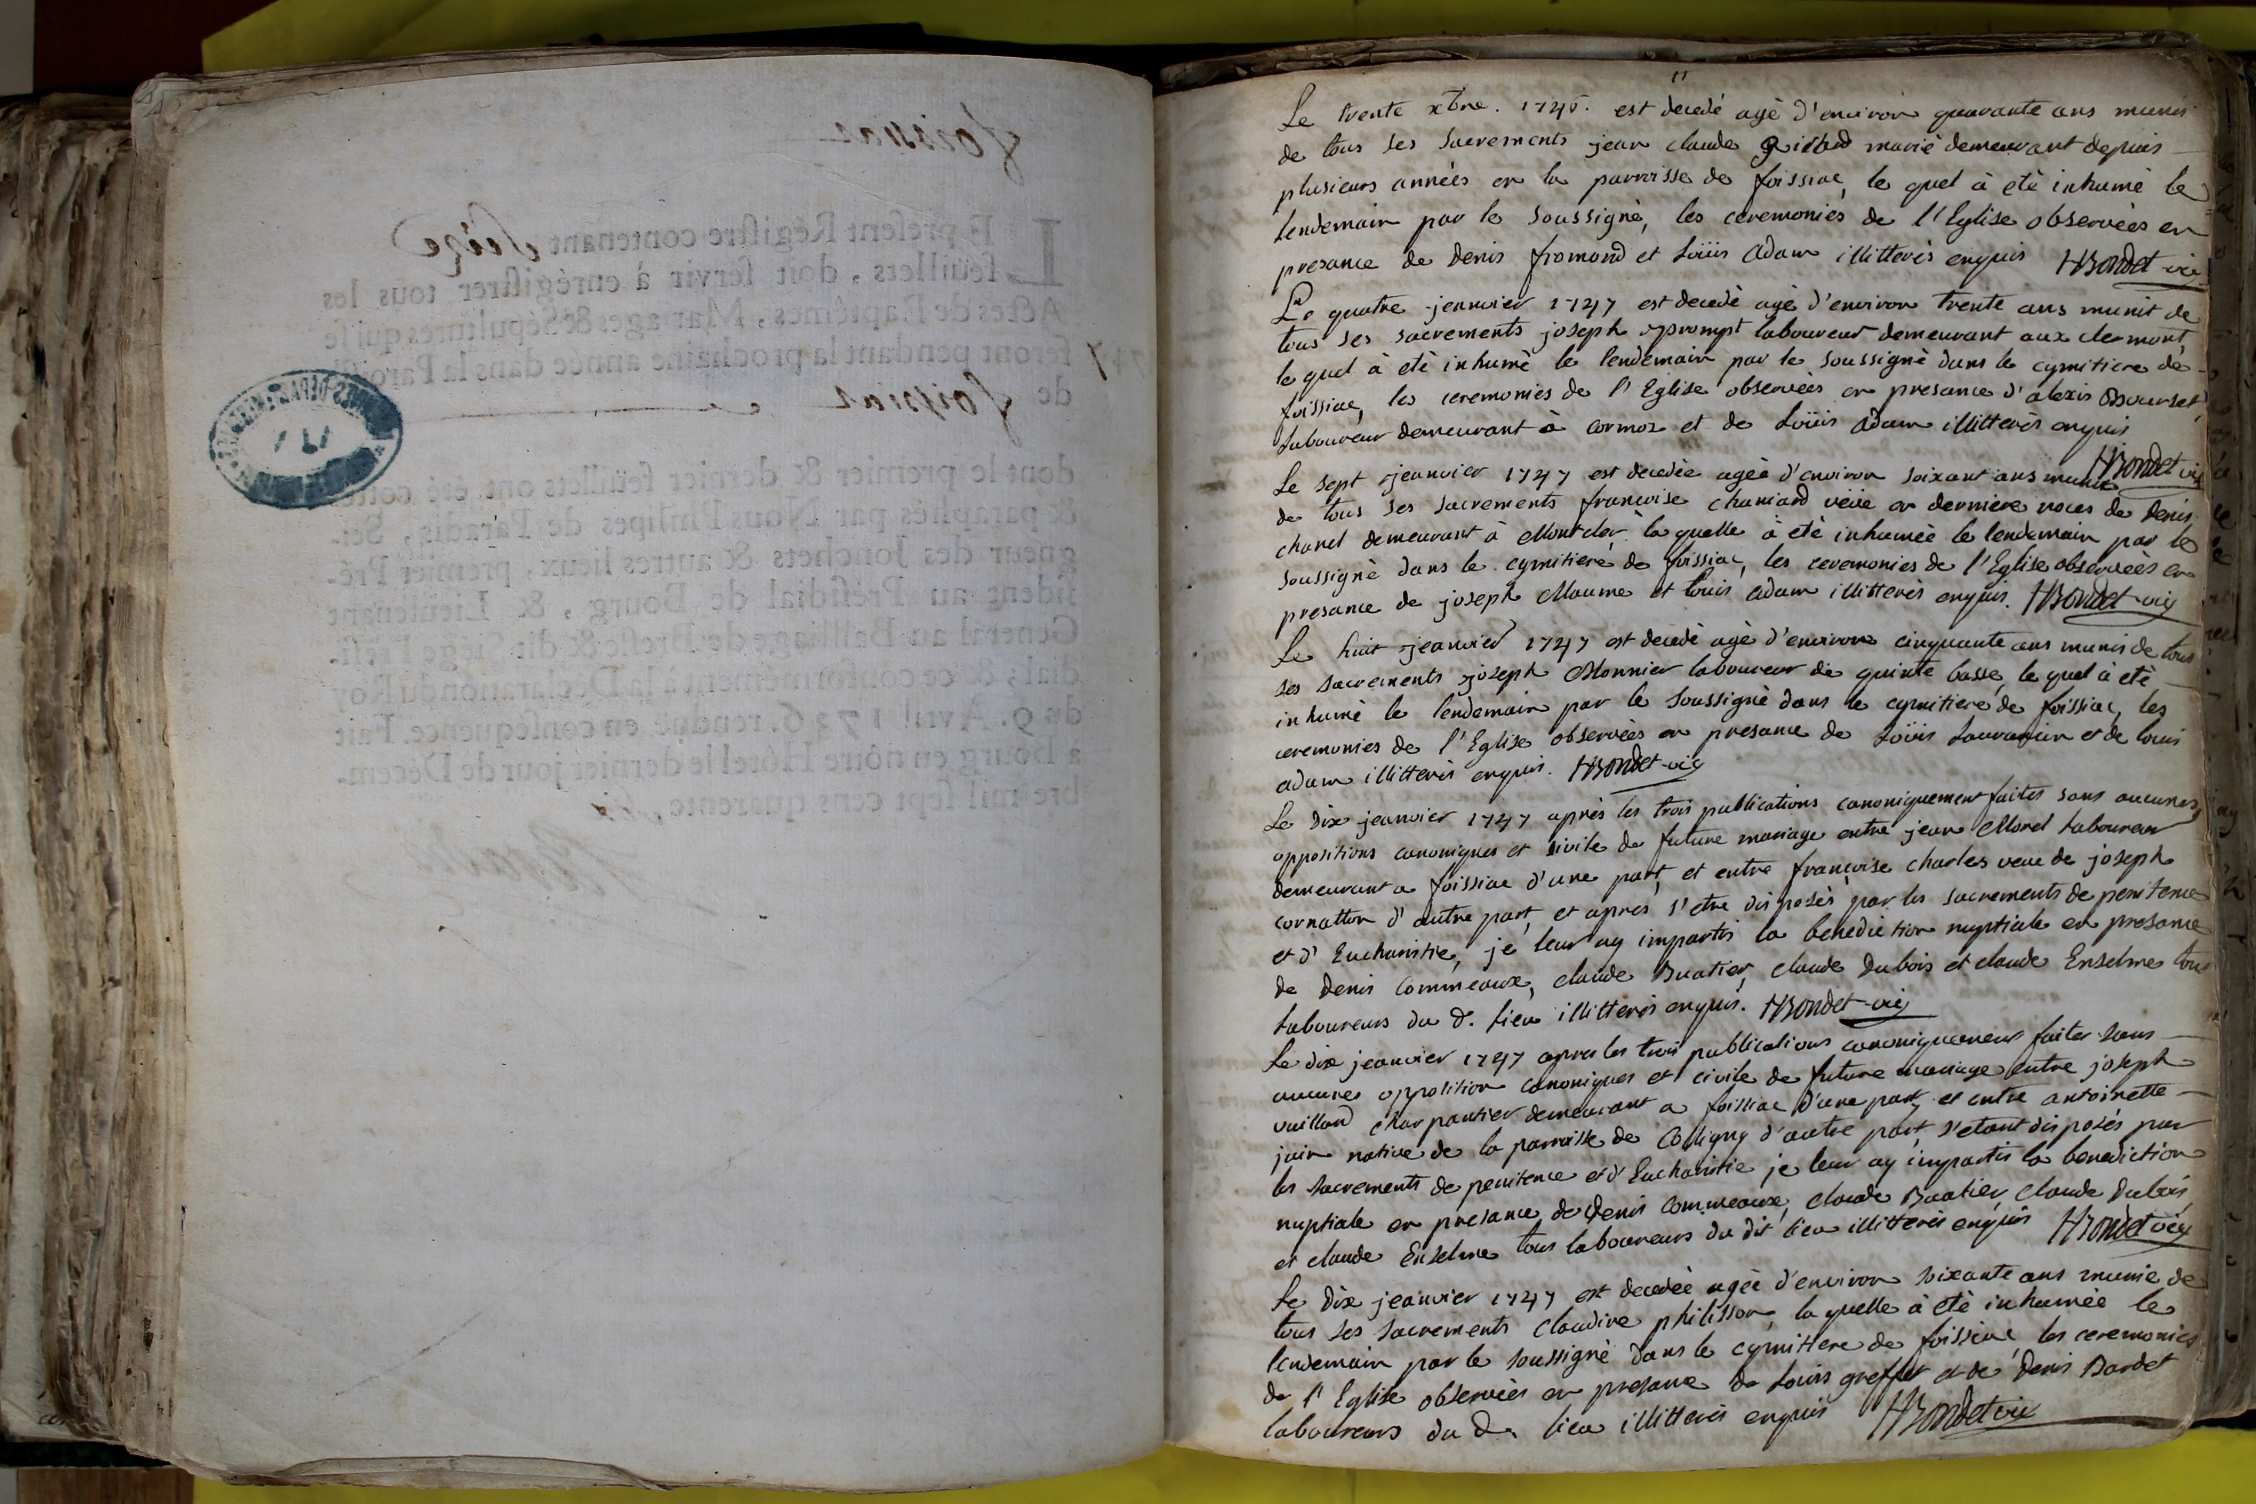 foissiac
LE present Régistre contenant seize
feüillets, doit servir à enrégistrer tous les
Actes de Baptêmes, Mariages & Sépultures qui se
feront pendant la prochaine année dans la Paroisse
de foissiac
dont le premier & dernier feüillets ont été cottés
& paraphés par Nous Philipes de Paradis, Sei-
gneur des Jonchets & autres lieux, premier Pré-
sident au Présidial de Bourg, & Lieutenant
Général au Bailliage de Bresse & dit Siége Présí-
dial; & ce conformément à la Déclaration du Roy
du 9. Avril 1736. renduë en conséquence. Fait
à Bourg en nôtre Hôtel le dernier jour de Décem-
bre mil sept cens quarente
Le trente xbre. 1746. est decedé agè d'environ quarante ans munis
de tous ses sacrements jean claude marié demeurant depuis
plusieurs années en la parroisse de foissiac, le quel à eté inhumé le
lendemain par le soussigné, les ceremoniés de l'Eglise observées en
presance de denis fromond et Loüis adam illitterés enquis HBondet vic
Le quatre jeanvier 1747 est decedé agè d'environ trente ans munit de
tous ses sacrements joseph prompt laboureur demeurant aux clermont,
le quel à eté inhumé le lendemain par le soussigné dans le cymitiere de
foissiac, les ceremoniés de l'Eglise observées en presance d'alexis Bourset,
laboureur demeurant à cormoz et de Loüis adam illitterés enquis
HBondet vic
Le sept jeanvier 1747 est decedée agée d'environ soixant ans munie
de tous ses sacrements francoise chanard veüe en derniere noces de denis
chanel demeurant à Montcler, la quelle à eté inhumée le lendemain par le
soussigné dans le cymitiere de foissiac, les ceremonies de l'Eglise observées en
presance de joseph Maume et louis adam illitterés enquis. HBondet vic
Le huit jeanvier 1747 est decedé agè d'environ cinquante ans munis de tous
ses sacrements joseph Monnier laboureur de quinte basse, le quel à eté
inhumé le lendemain par le soussigné dans le cymitiere de foissiac, les
ceremonies de l'Eglise observées en presance de Loüis et de louis
adam illitterés enquis. HBondet vic
Le dix jeanvier 1747 après les trois publications canoniquement faites sans aucunes
oppositions canoniques et sivile de future mariage entre jean Morel laboureur
demeurant a foissiac d'une part, et entre françoise charles veue de joseph
cornatton d'autre part, et apres s'etre disposés par les sacrements de penitence
et d'Eucharistie, je leur ay impartis la benediction nuptiale en presance
de denis Commeaux, claude Buatier, claude Dubois et claude Enselme tous
laboureurs du d. lieu illitterés enquis. HBondet vic
Le dix jeanvier 1747 apres les trois publications canoniquement faites sans
aucunes opposition canoniques et civile de future mariage entre joseph
vuillard charpantier demeurant a foissiac d'une part, et entre antoinette
juin native de la parroisse de Coligny d'autre part, s'etant disposés par
les sacrements de penitence et d'Eucharistie je leur ay impartis la benediction
nuptiale en presance de Denis Commeaux, claude Buatier claude Dubois
et claude Enselme tous laboureurs du dit lieu illitterés enquis HBondet vic
Le dix jeanvier 1747 est decedée agée d'environ soixante ans munie de
tous ses sacrements claudine philisson, la quelle à eté inhumée le
lendemain par le soussigné dans le cymitiere de foissiac les ceremonies
de l'Eglise observées en presance de Louis greffet et de Denis Bardet
laboureurs du d. lieu illitterés enquis HBondet vic